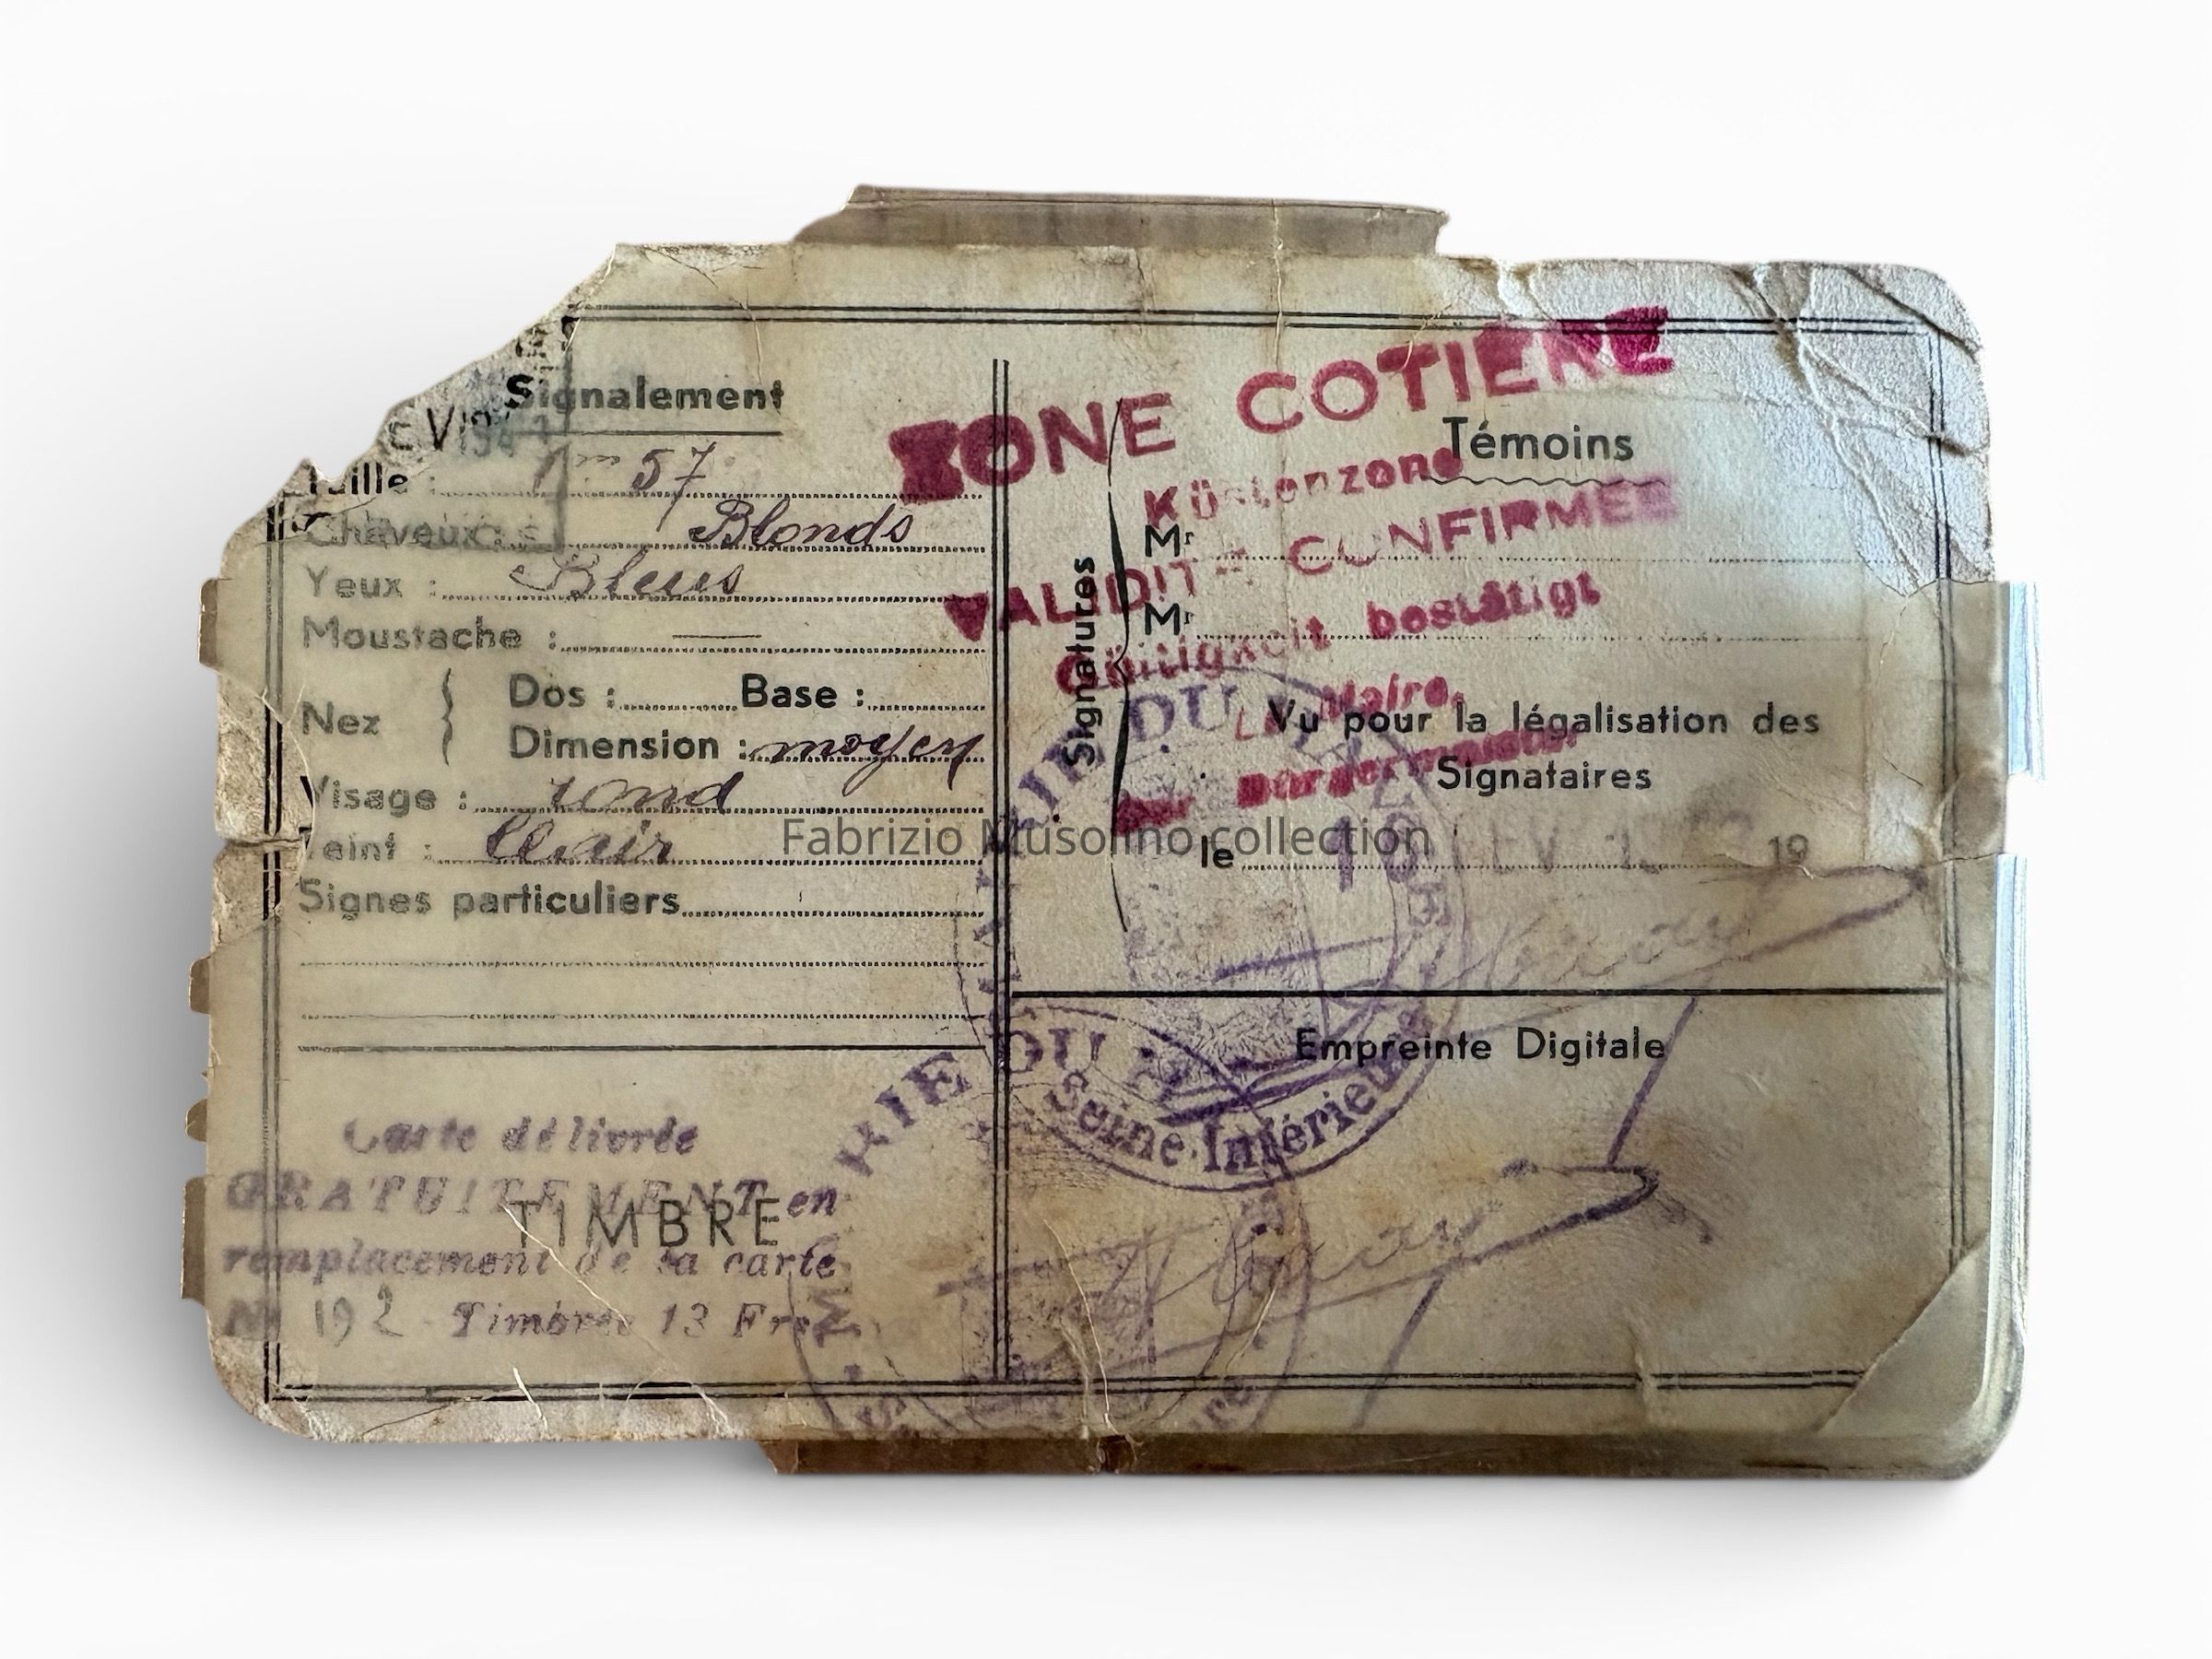 Signalement
Taille : 1m 57
Cheveux : Blonds
Yeux : Bleus
Moustache : —
Nez
Dos : Base :
Dimension : moyen
Visage : rond
Teint : Clair
Signes particuliers
Carte délivrée
GRATUITEMENT en
TIMBRE
remplacement de la carte
N° 192 Timbrée 13 Frs
ZONE COTIERE
Témoins
Küstenzone
VALIDITÉ CONFIRMÉE
Gültigkeit bestätigt
Signatures
Mr
Mr
Le Maire,
Vu pour la légalisation des
Der Bürgermeister
Signataires
le 16 19
MAIRIE DU
Seine-Inférieure
Empreinte Digitale
MAIRIE DU
Fabrizio Musolino collection